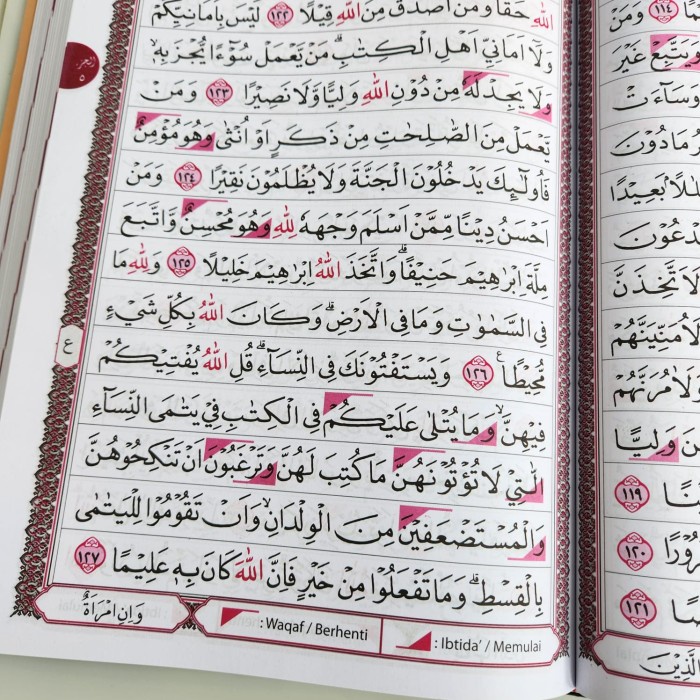 اللّٰهِ حَقًّا وَمَنْ اَصْدَقُ مِنَ اللّٰهِ قِيْلًا ۝١٢٢ لَيْسَ بِاَمَانِيِّكُمْ
وَلَآ اَمَانِيِّ اَهْلِ الْكِتٰبِ ۗ مَنْ يَّعْمَلْ سُوْۤءًا يُّجْزَ بِهٖۙ
وَلَا يَجِدْ لَهٗ مِنْ دُوْنِ اللّٰهِ وَلِيًّا وَّلَا نَصِيْرًا ۝١٢٣ وَمَنْ
يَّعْمَلْ مِنَ الصّٰلِحٰتِ مِنْ ذَكَرٍ اَوْ اُنْثٰى وَهُوَ مُؤْمِنٌ
فَاُولٰۤىِٕكَ يَدْخُلُوْنَ الْجَنَّةَ وَلَا يُظْلَمُوْنَ نَقِيْرًا ۝١٢٤ وَمَنْ
اَحْسَنُ دِيْنًا مِّمَّنْ اَسْلَمَ وَجْهَهٗ لِلّٰهِ وَهُوَ مُحْسِنٌ وَّاتَّبَعَ
مِلَّةَ اِبْرٰهِيْمَ حَنِيْفًا ۗ وَاتَّخَذَ اللّٰهُ اِبْرٰهِيْمَ خَلِيْلًا ۝١٢٥ وَلِلّٰهِ مَا
فِى السَّمٰوٰتِ وَمَا فِى الْاَرْضِ ۗ وَكَانَ اللّٰهُ بِكُلِّ شَيْءٍ
مُّحِيْطًا ۝١٢٦ ࣖ وَيَسْتَفْتُوْنَكَ فِى النِّسَاۤءِ ۗ قُلِ اللّٰهُ يُفْتِيْكُمْ
فِيْهِنَّ ۙ وَمَا يُتْلٰى عَلَيْكُمْ فِى الْكِتٰبِ فِيْ يَتٰمَى النِّسَاۤءِ
الّٰتِيْ لَا تُؤْتُوْنَهُنَّ مَا كُتِبَ لَهُنَّ وَتَرْغَبُوْنَ اَنْ تَنْكِحُوْهُنَّ
وَالْمُسْتَضْعَفِيْنَ مِنَ الْوِلْدَانِ ۙ وَاَنْ تَقُوْمُوْا لِلْيَتٰمٰى
بِالْقِسْطِ ۗ وَمَا تَفْعَلُوْا مِنْ خَيْرٍ فَاِنَّ اللّٰهَ كَانَ بِهٖ عَلِيْمًا ۝١٢٧
وَاِنِ امْرَاَةٌ
: Waqaf / Berhenti
: Ibtida' / Memulai
الجزء ٥
ع
١١٤ وَمَنْ
وَيَتَّبِعْ غَيْرَ
وَسَاۤءَتْ
مَا دُوْنَ
ضَلٰلًا ۢ بَعِيْدًا
يَّدْعُوْنَ
لَاَتَّخِذَنَّ
وَلَاُمَنِّيَنَّهُمْ
وَلَاٰمُرَنَّهُمْ
وَلِيًّا
١١٩
١٢٠
١٢١
وَالَّذِيْنَ